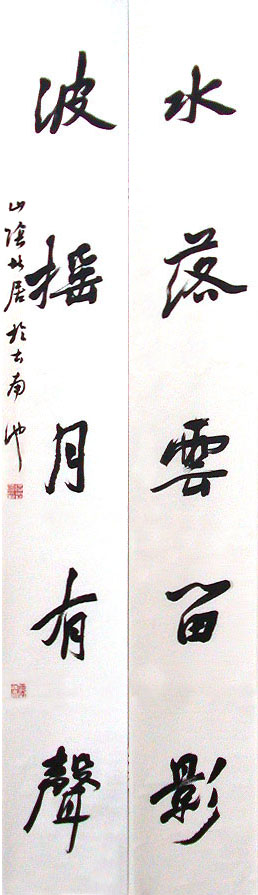 水落雲留影
波摇月有聲
山陰
居於古南